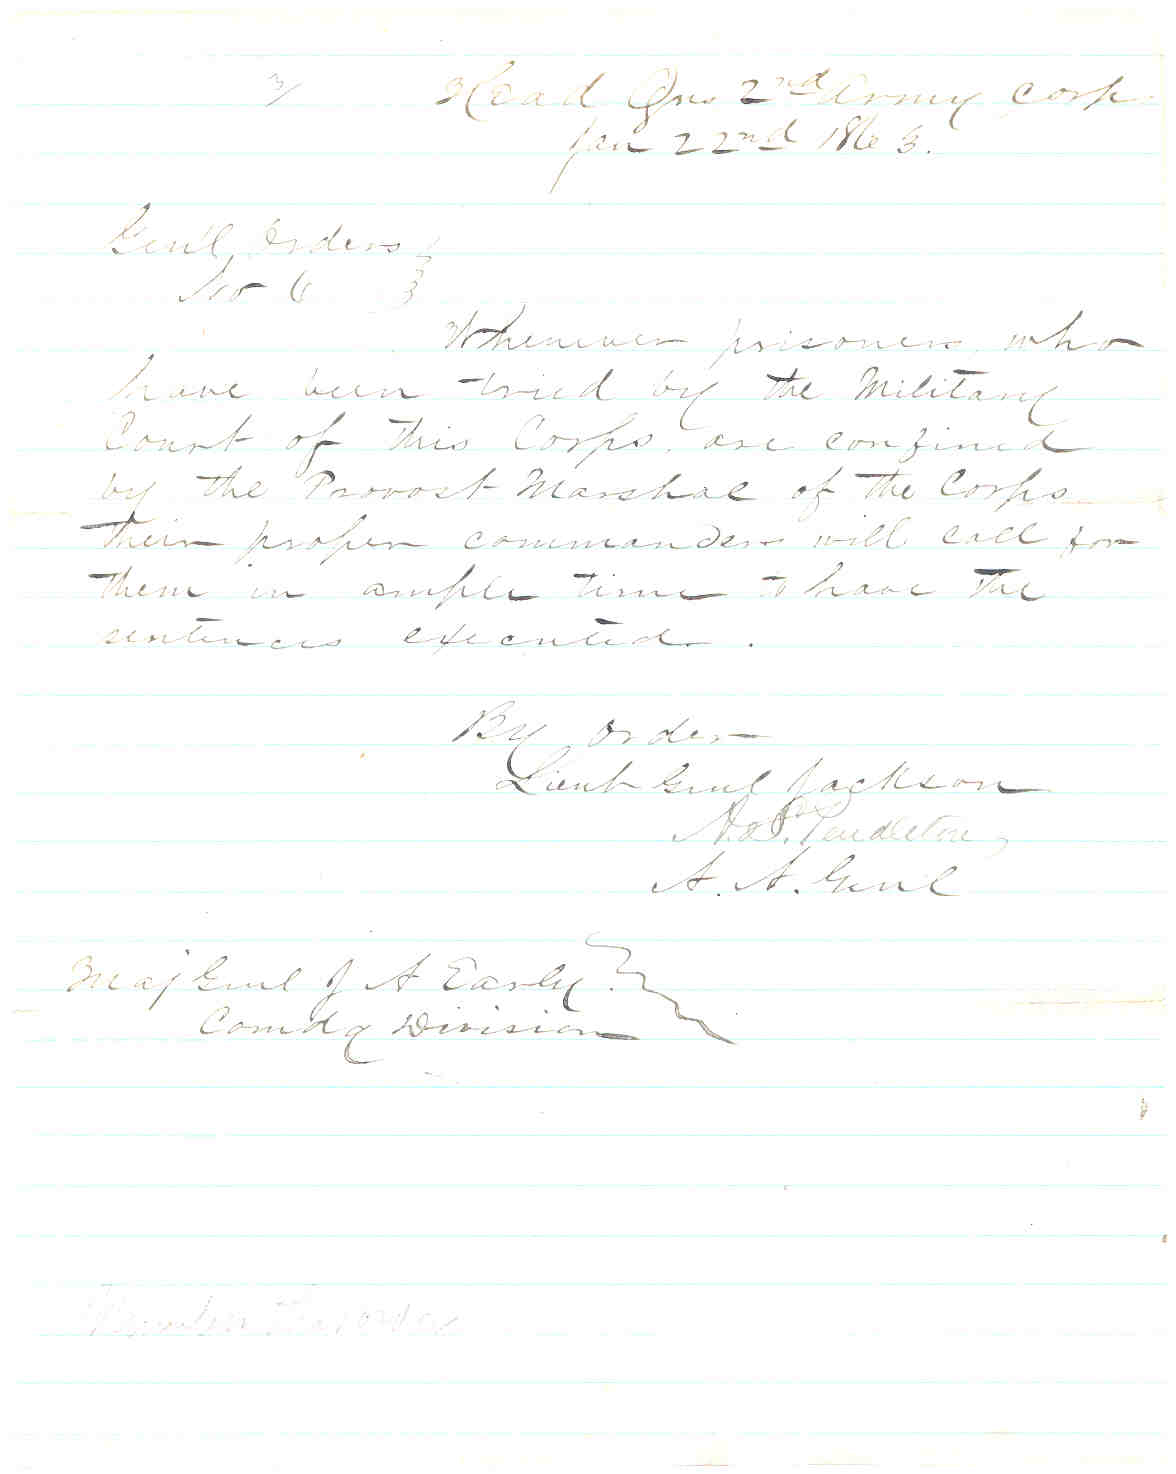 3/
Head Qrs 2nd Army Corps
Jan 22nd 1863.
Gen'l Orders
No 6
Whenever prisoners, who
have been tried by the Military
Court of this Corps, are confined
by the Provost Marshal of the Corps
their proper commanders will call for
them in ample time to have the
sentences executed.
By order
Lieut Genl Jackson
A. S. Pendleton
A. A. Gen'l
Maj Genl J A Early
Comdg Division
this order